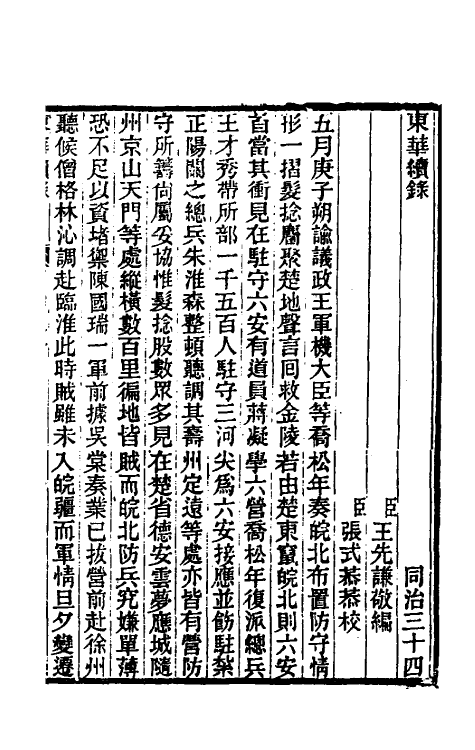 東華續錄 同治三十四
臣王先謙敬編
臣張式恭恭校
五月庚子朔諭議政王軍機大臣等喬松年奏皖北布置防守情
形一摺髮捻麕聚楚地聲言回救金陵若由楚東竄皖北則六安
首當其衝見在駐守六安有道員蔣凝學六營喬松年復派總兵
王才秀帶所部一千五百人駐守三河尖爲六安接應並飭駐紮
正陽關之總兵朱淮森整頓聽調其壽州定遠等處亦皆有營防
守所籌尙屬妥協惟髮捻股數眾多見在楚省德安雲夢應城隨
州京山天門等處縱橫數百里徧地皆賊而皖北防兵究嫌單薄
恐不足以資堵禦陳國瑞一軍前據吳棠奏業已拔營前赴徐州
聽候僧格林沁調赴臨淮此時賊雖未入皖疆而軍情旦夕變遷